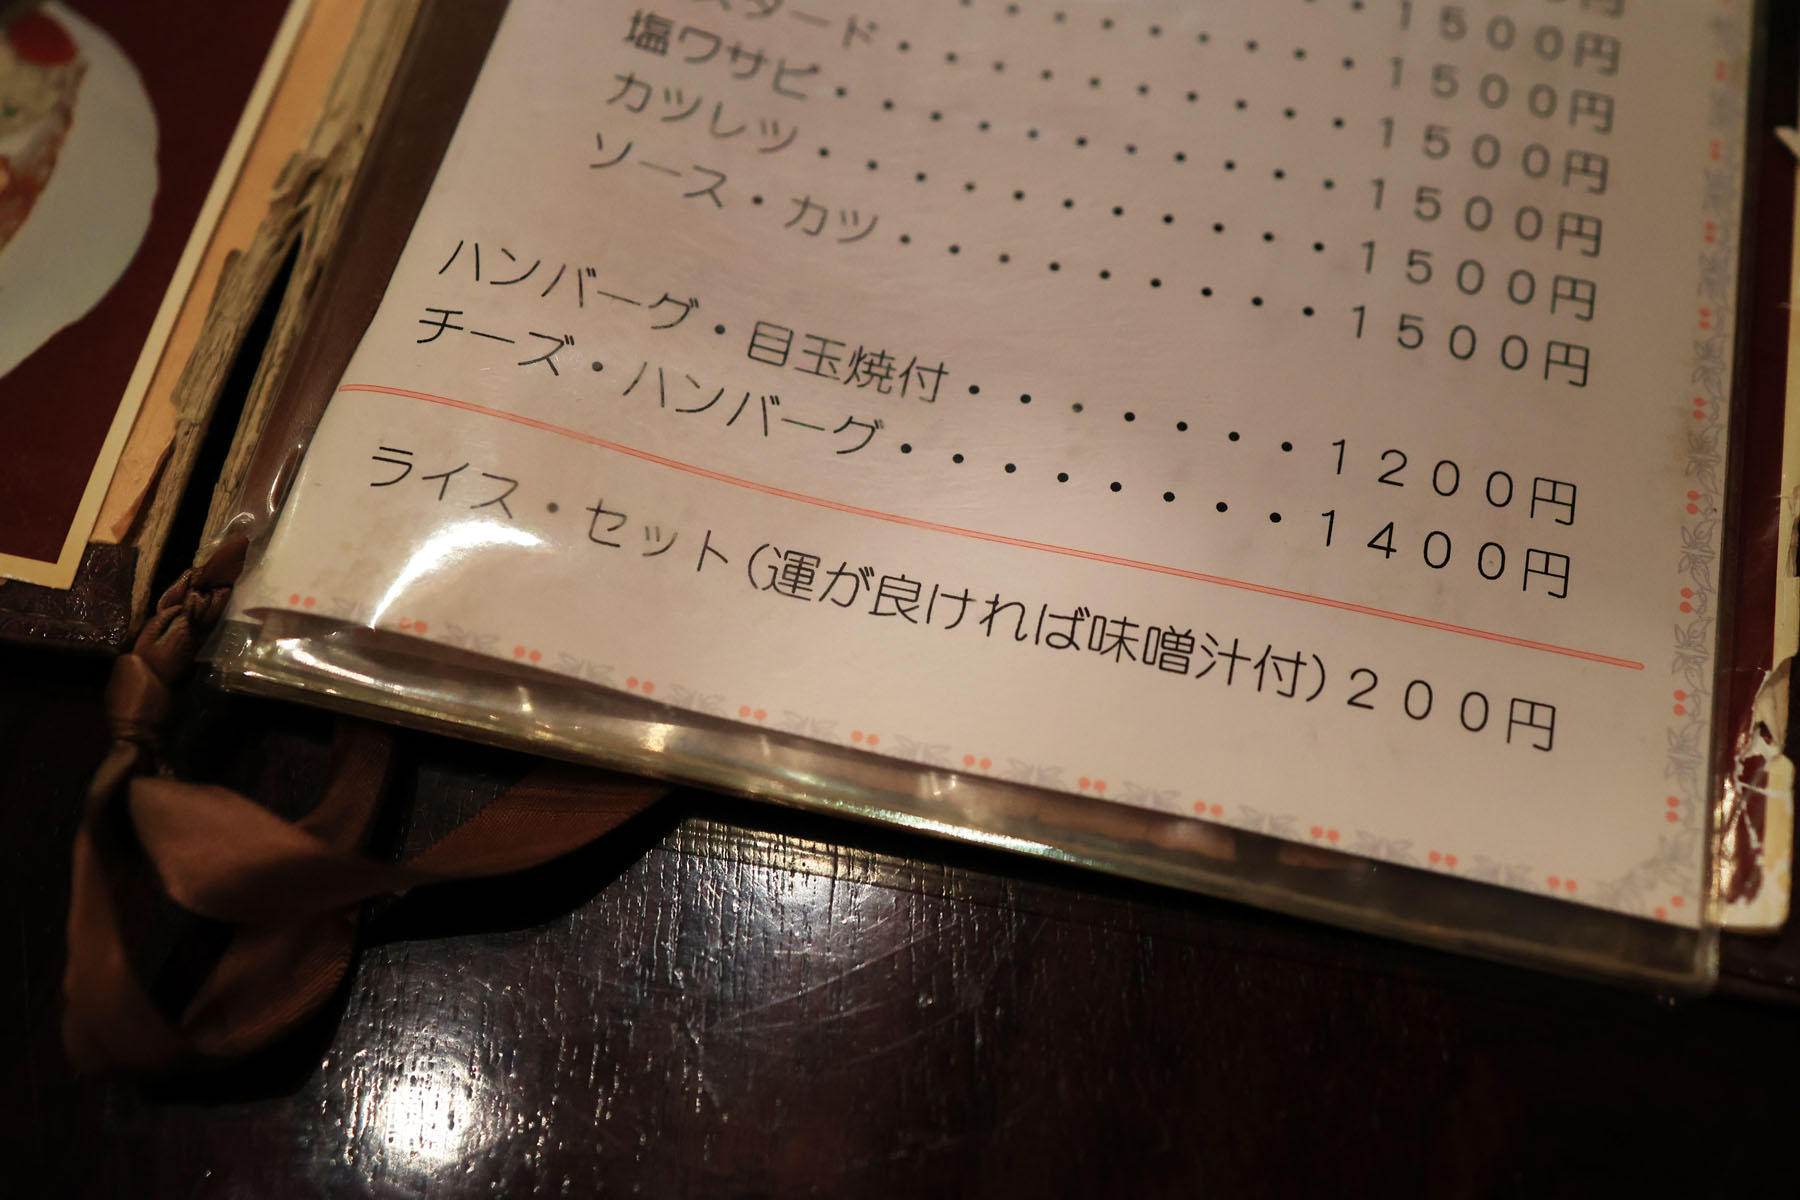 円
1500円
スタード・・・・・・・・・・1500円
塩ワサビ・・・・・・・・・・・1500円
カツレツ・・・・・・・・・・・1500円
ソース・カツ・・・・・・・・・1500円
1500円
ハンバーグ・目玉焼付・・・・・・・1200円
チーズ・ハンバーグ・・・・・・・・1400円
ライス・セット(運が良ければ味噌汁付)200円